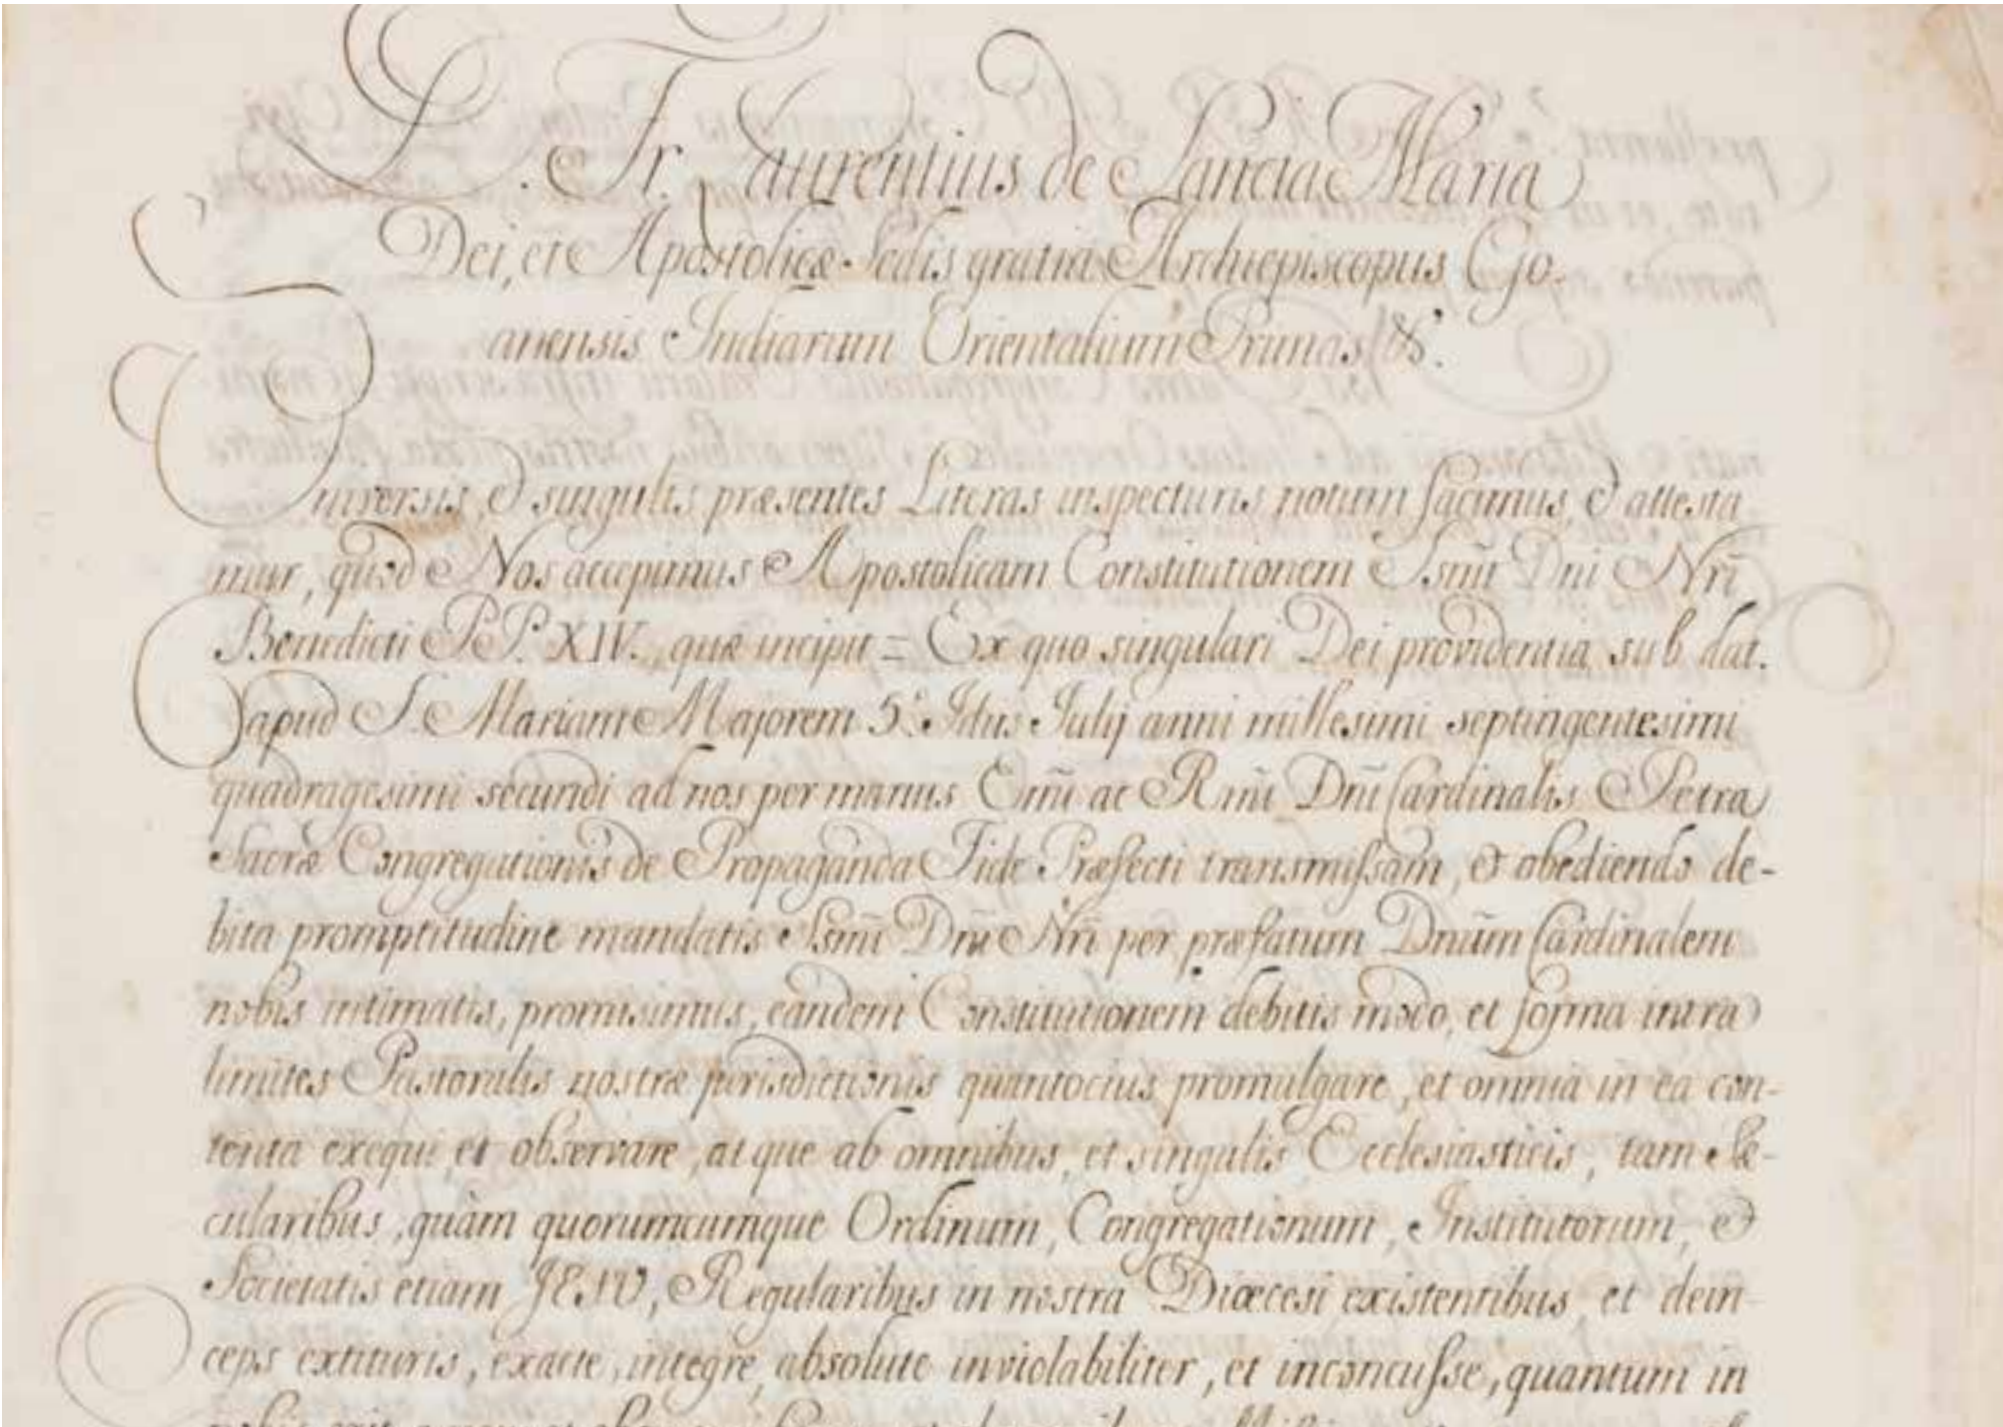 D. Fr. Laurentius de Sancta Maria
Dei, et Apostolicæ Sedis gratia Archiepiscopus Go-
anensis Indiarum Orientalium Primas &.
Universis, & singulis præsentes Literas inspecturis notum facimus, & attesta
mur, quod Nos accepimus Apostolicam Constitutionem Ssmi Dni Nr̃i
Benedicti PP. XIV., quæ incipit = Ex quo singulari Dei providentia, sub dat.
apud S. Mariam Majorem 5.º Idus Julij anni millesimi septingentesimi
quadragesimi secundi ad nos per manus Em̃i ac Rm̃i Dñi Cardinalis Petra
Sacræ Congregationis de Propaganda Fide Præfecti transmiſsam, & obediendo de-
bita promptitudine mandatis Ssm̃i Dñi Nr̃i per præfatum Dnũm Cardinalem
nobis intimatis, promisimus, eandem Constitutionem debitis modo, et forma intra
limites Pastoralis nostræ jurisdictionis quantocius promulgare, et omnia in ea con-
tenta exequi, et observare, atque ab omnibus, et singulis Ecclesiasticis, tam Sæ-
cularibus, quàm quorumcumque Ordinum, Congregationum, Institutorum, &
Societatis etiam JESU, Regularibus in nostra Diœcesi existentibus, et dein-
ceps extituris, exacte, integre, absolute inviolabiliter, et inconcuſse, quantum in